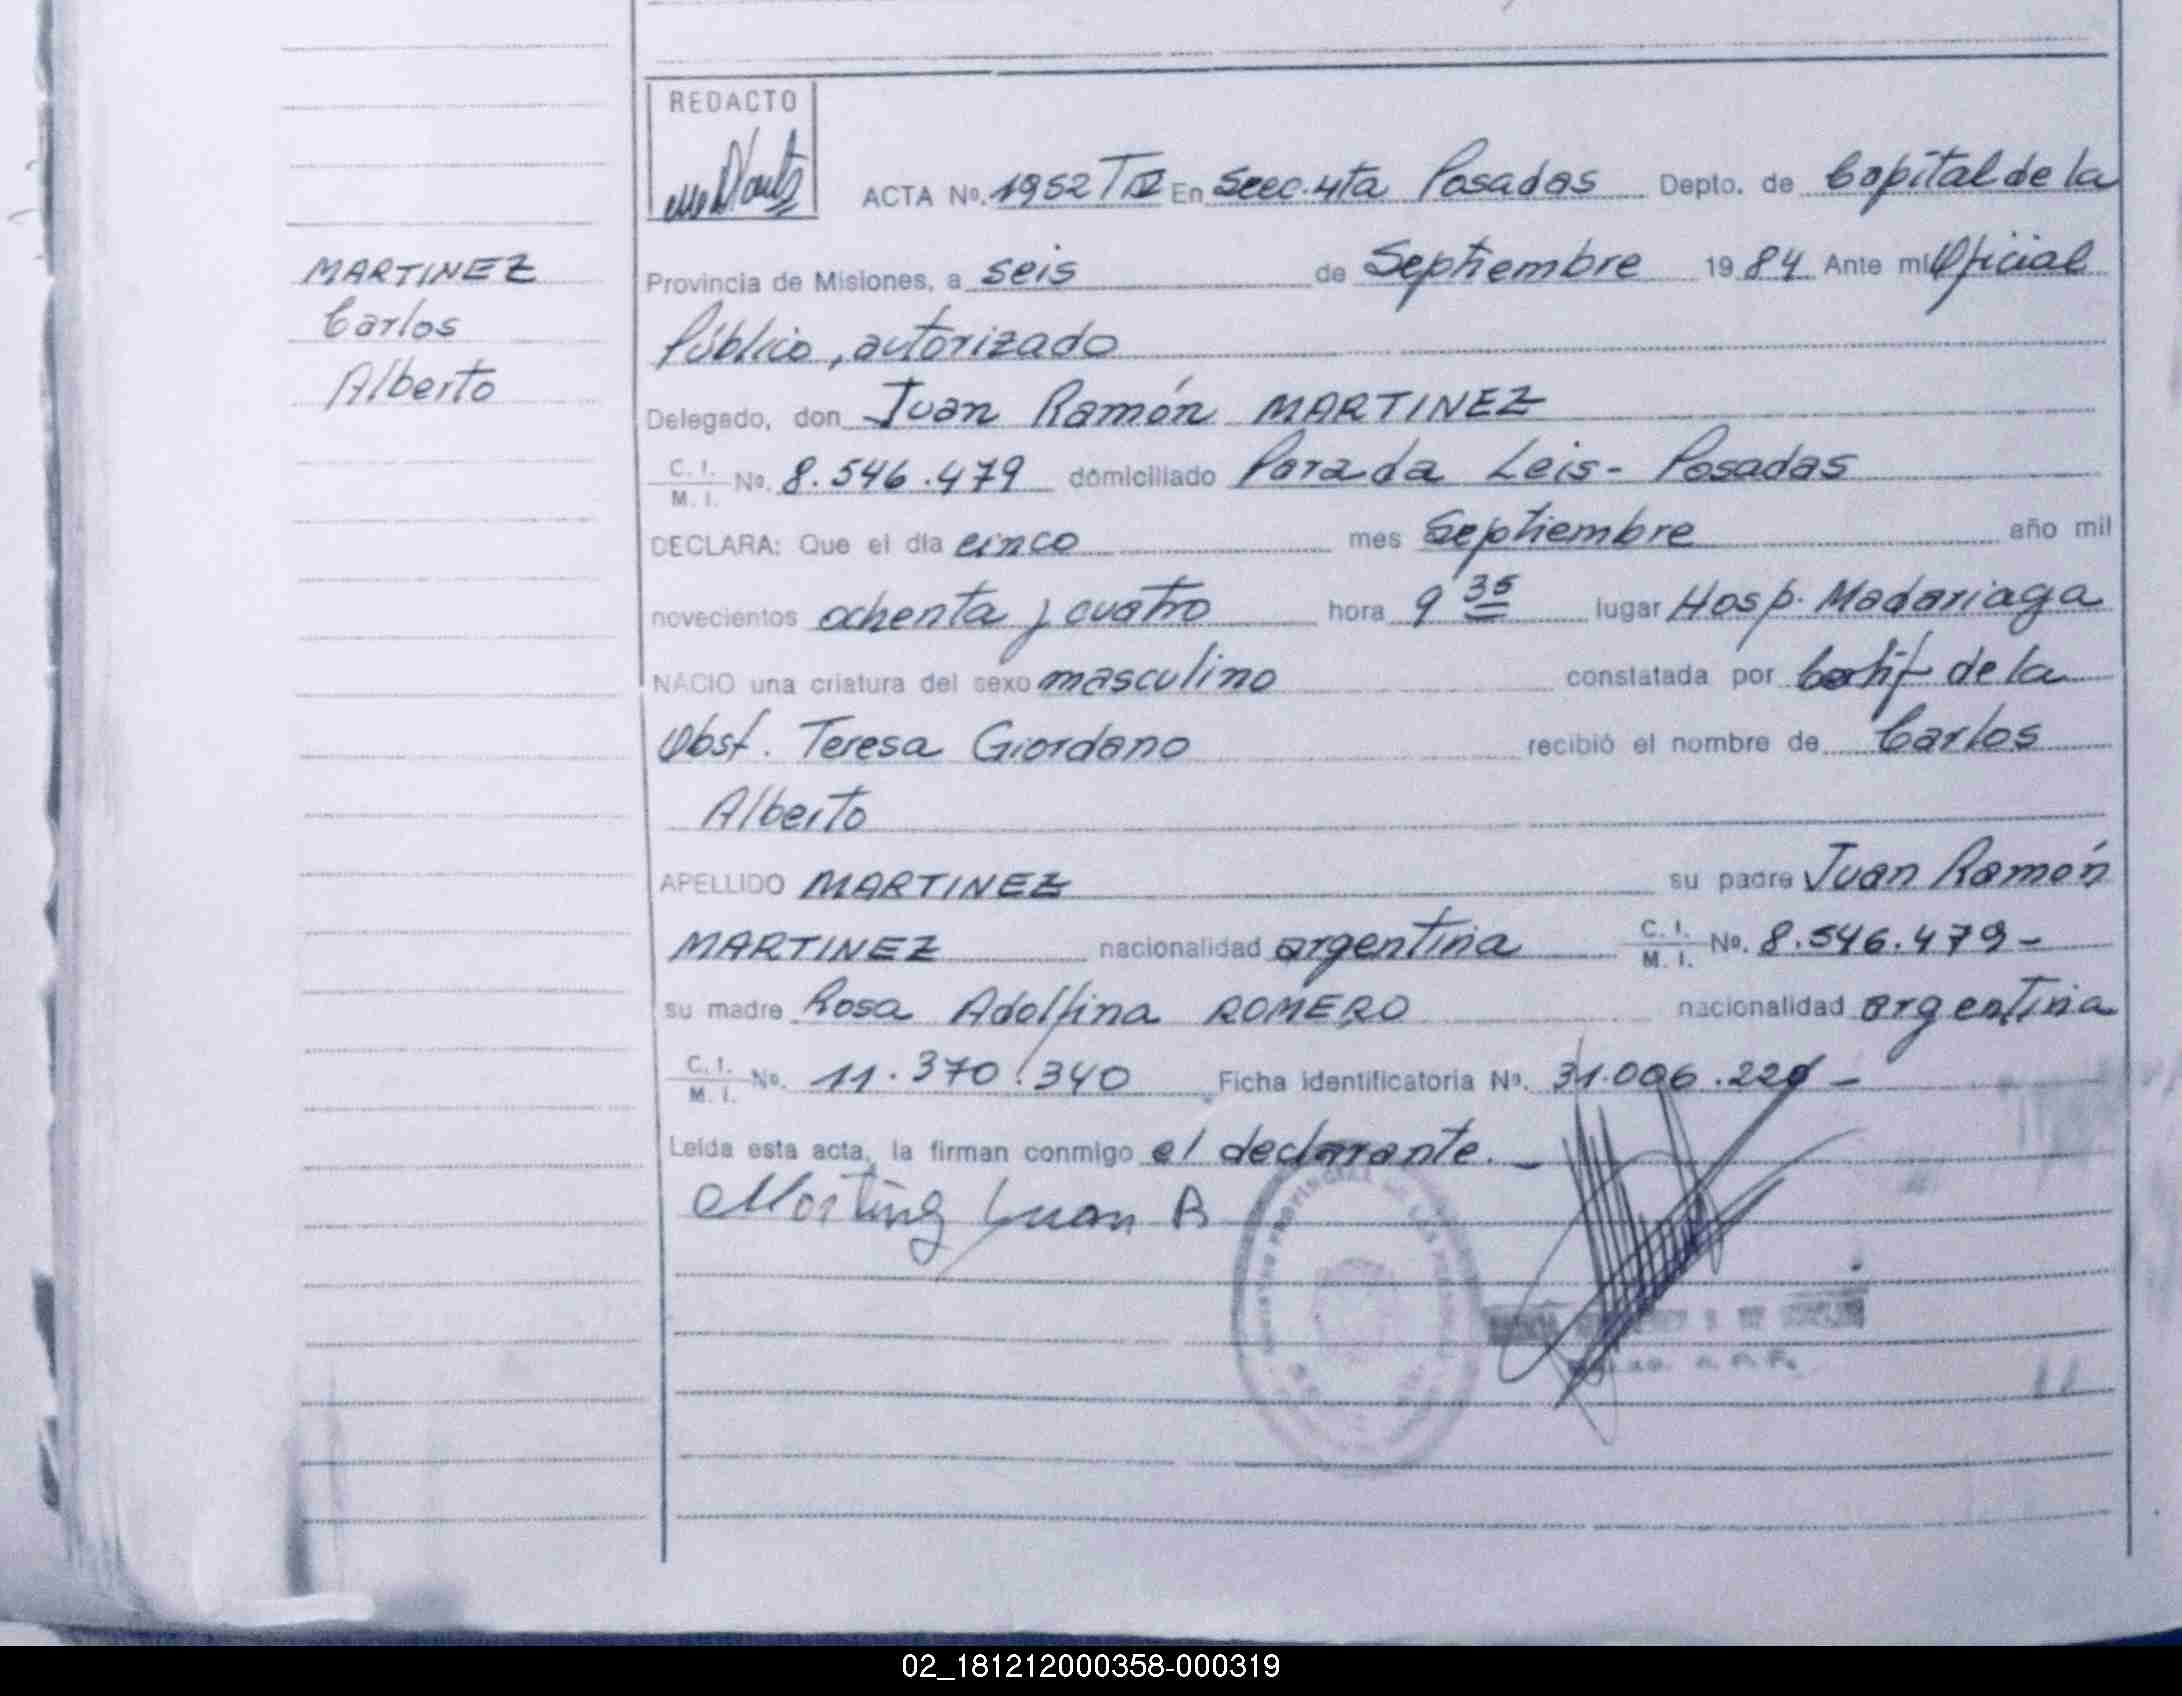 REDACTO
ACTA Nº. 1952 T IV En Secc. 4ta Posadas Depto. de Capital de la
MARTINEZ
Provincia de Misiones, a seis de Septiembre 19 84 Ante mí Oficial
Carlos
Público, autorizado
Alberto
Delegado, don Juan Ramón MARTINEZ
C. I. / M. I. Nº. 8.546.479 domiciliado Parada Leis - Posadas
DECLARA: Que el día cinco mes Septiembre año mil
novecientos ochenta y cuatro hora 9 35 lugar Hosp. Madariaga
NACIO una criatura del sexo masculino constatada por Certif de la
Obst. Teresa Giordano recibió el nombre de Carlos
Alberto
APELLIDO MARTINEZ su padre Juan Ramón
MARTINEZ nacionalidad argentina C. I. / M. I. Nº. 8.546.479 -
su madre Rosa Adolfina ROMERO nacionalidad argentina
C. I. / M. I. Nº. 11.370.340 Ficha identificatoria Nº. 31.006.220 -
Leída esta acta, la firman conmigo el declarante. -
Martinez Juan R
02_181212000358-000319